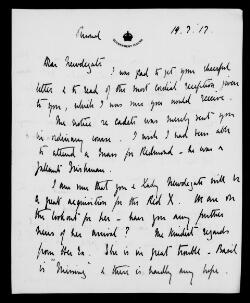 Personal
GOVERNMENT HOUSE
19.7.17.
Dear Newdegate
I was glad to get your cheerful
letter & to read of the most cordial reception given
to you, which I was sure you would receive.
The notice re cadets was merely sent you
in ordinary course. I wish I had been able
to attend a Mass for Redmond – he was a
gallant Irishman.
I am sure that you & Lady Newdegate will be
a great acquisition for the Red X. We are on
the lookout for her – have you any further
news of her arrival? The kindest regards
from Her Ex. She is in great trouble – Basil
is "Missing" & there is hardly any hope.